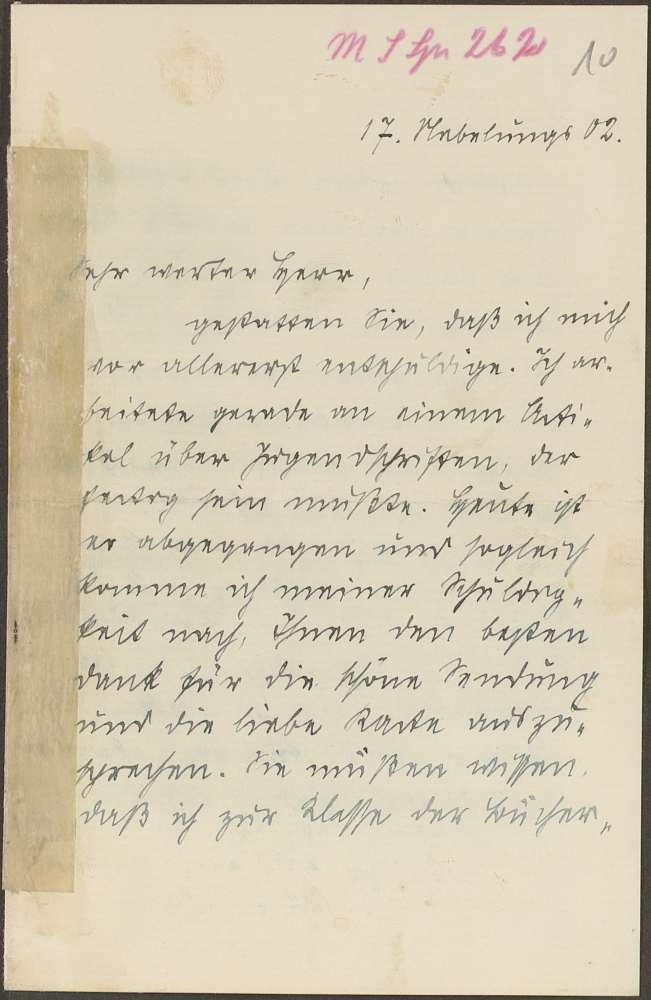 10
17. Nebelungs 02.
Sehr werter Herr,
gestatten Sie, daß ich mich
vor allererst entschuldige. Ich ar-
beitete gerade an einem Arti-
kel über Jugendschriften, der
fertig sein mußte. Heute ist
er abgegangen und sogleich
komme ich meiner Schuldig-
keit nach, Ihnen den besten
Dank für die schöne Sendung
und die liebe Karte auszu-
sprechen. Sie müßen wissen,
daß ich zur Klasse der Bücher-